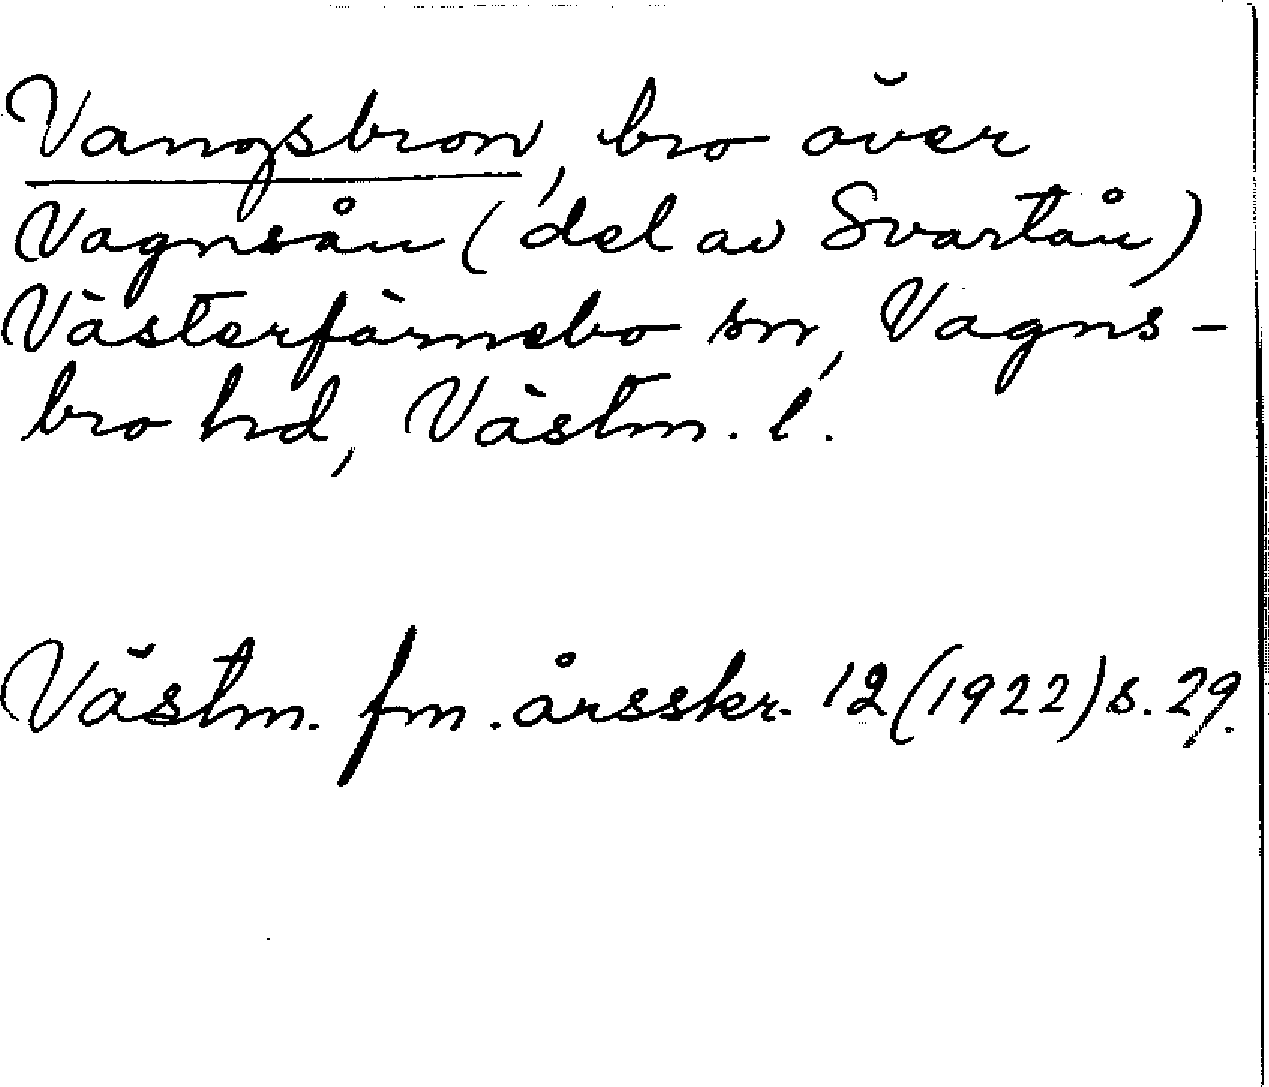 Vangsbron, bro över
Vagnsån (del av Svartån)
Västerfärnebo sn, Vagns-
bro hd, Västm. l.
Västm. fm. årsskr. 12 (1922) s. 29.